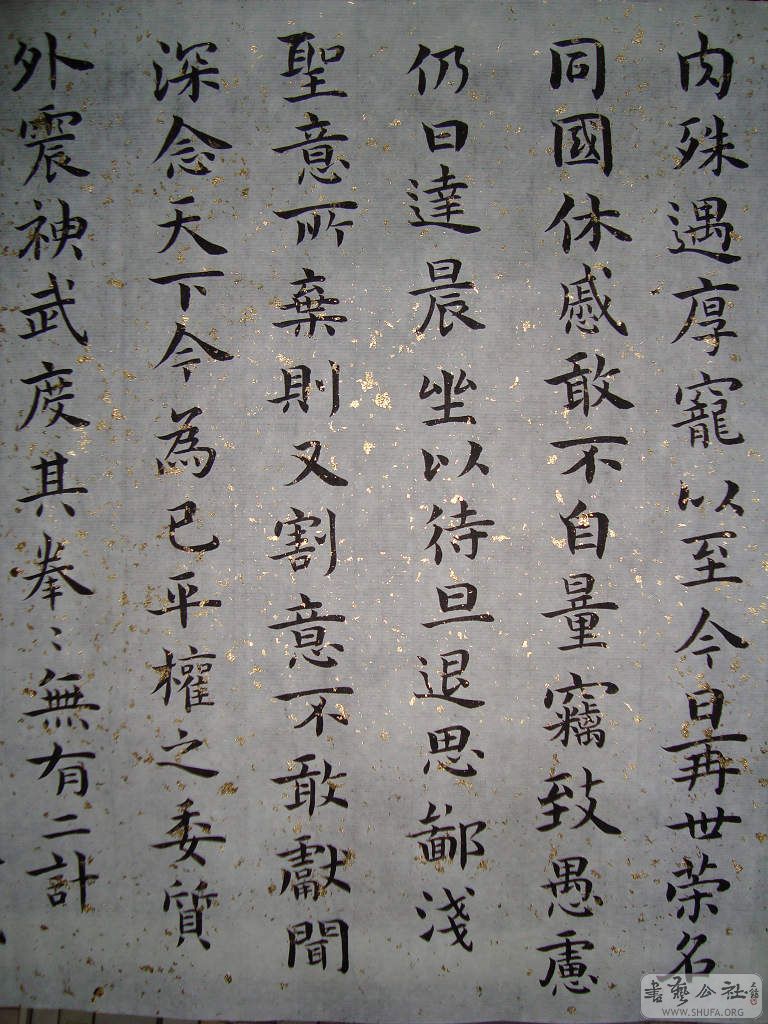 肉殊遇厚寵以至今日再世荣名
同國休慼敢不自量竊致愚慮
仍日達晨坐以待旦退思鄙淺
聖意所棄則又割意不敢獻聞
深念天下今為已平權之委質
外震神武度其拳〻無有二計
書藝公社
WWW.SHUFA.ORG